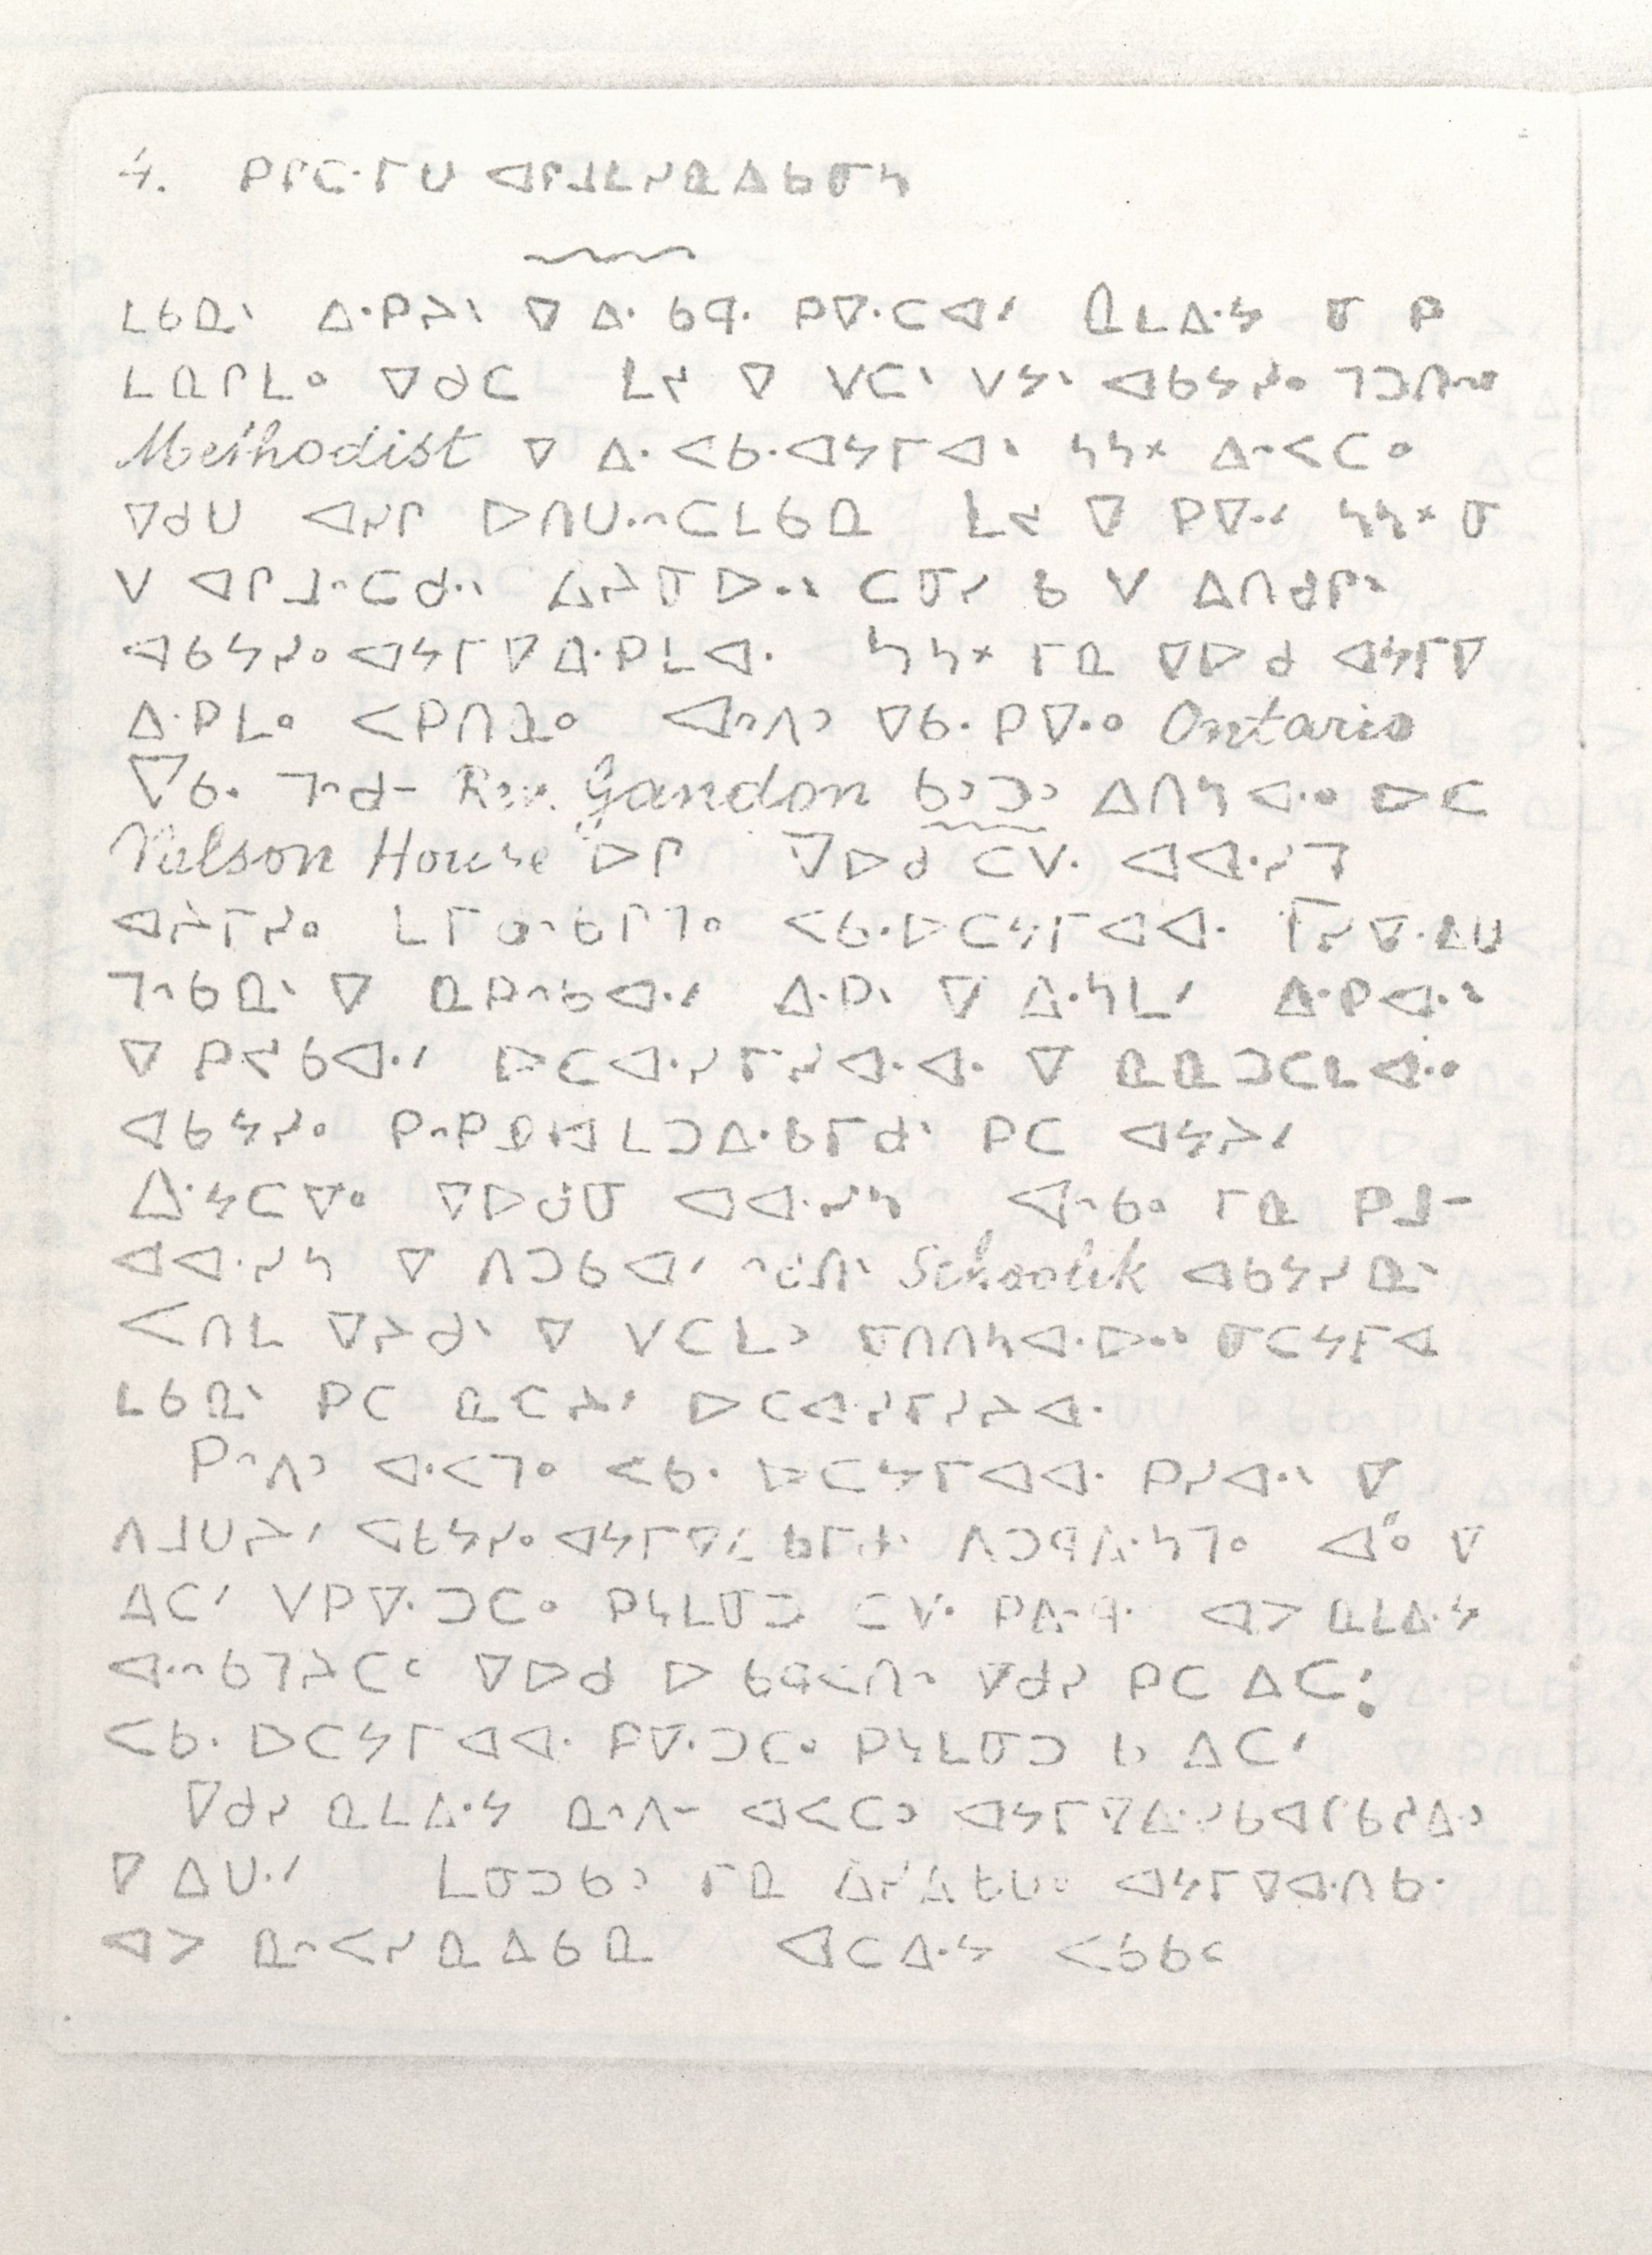 4. ᑭᒋᑕᐧᒥᑌ ᐊᒋᒧᒪᓯᓇᐃᑲᓂᓴ
ᒪᑲᓇᐠ ᐃᐧᑭᔪᐠ ᐁ ᐃᐧ ᑲᑫᐧ ᑭᐁᐧᑕᐊᐟ ᓇᒪᐃᐧᔭ ᓂ ᑭ
ᒪᓇᒋᒪᐤ ᐁᑯᑕ ᒪᔦ ᐁ ᐯᑕᐠ ᐯᔭᐠ ᐊᑲᔭᓯᐤ
Methodist ᐁ ᐃᐧ ᐸᑲᐧᐊᔭᒥᐊᐠ ᓴᓴᕽ ᐃᐢᐸᑕᐤ
ᐁᑯᑌ ᐊᓯᒋ ᐅᑎᑌᐧᐢᑕᒪᑲᓇ ᒪᔦ ᐁ ᑭᐁᐧᐟ ᓴᓴᕽ ᓂ
ᐯ ᐊᒋᒧᐢᑕᑯᐧᐠ ᐃᔨᓂᐅᐧᐠ ᑕᓂᓯ ᑲ ᐯ ᐃᑎᑯᒋᐠ
ᐊᑲᔭᓯᐤᐊᔭᒥᐁᐃᐧᑭᒪᐊᐧ ᓴᓴᕽ ᒥᓇ ᐁᐅᑯ ᐊᔭᒥᐁ
ᐃᐧᑭᒪᐤ ᐸᑭᑎᓇᐤ ᐊᐢᐱᐣ ᐁᑲᐧ ᑭᐁᐧᐤ Ontario
ᐁᑲᐧ ᒣᐢᑯᐨ Rev. Gandon ᑲᐣᑐᐣ ᐃᑎᓴᐊᐧᐤ ᐅᑕ
Nelson House ᐅᒋ ᐁᐅᑯ ᑕᐯᐧ ᐊᐊᐧᓯᒣ
ᐊᔨᒥᓯᐤ ᒪᒥᓄᐢᑲᒋᒣᐤ ᐸᑲᐧᐅᑕᔭᒥᐊᐊᐧ ᒥᓯᐁᐧᐃᑌ
ᒣᐢᑲᓇᐠ ᐁ ᓇᑭᐢᑲᐊᐧᐟ ᐃᐧᑭᐠ ᐁ ᐃᐧᓴᒪᐟ ᐃᐧᑭᐊᐧᐠ
ᐁ ᑭᔦᑲᐊᐧᐟ ᐅᑕᐊᐧᓯᒥᓯᐊᐧᐊᐧ ᐁ ᓇᓇᑐᑕᒪᐊᐧᐤ
ᐊᑲᔭᓯᐤ ᑭᐢᑭᓄᐊᒪᑐᐃᐧᑲᒥᑯᐠ ᑭᑕ ᐊᔭᔨᐟ
ᐃᐧᔭᑕᐁᐤ ᐁᐅᑯᓂ ᐊᐊᐧᓯᓴ ᐊᐢᑲᐤ ᒥᓇ ᑭᒧᐨ
ᐊᐊᐧᓯᓴ ᐁ ᐱᑐᑲᐊᐟ ᐢᑯᓬᐠ Schoolik ᐊᑲᔭᓯᓇᐠ
ᐸᑎᒪ ᐁᔨᑯᐠ ᐁ ᐯᑕᒪᐣ ᓂᑎᑎᓴᐊᐧᐅᐧᐠ ᓂᑕᔭᒥᐊ
ᒪᑲᓇᐠ ᑭᑕ ᓇᑕᔨᐟ ᐅᑕᐊᐧᓯᒥᓯᔨᐊᐧ
ᑭᐢᐱᐣ ᐊᐧᐸᒣᐤ ᐸᑲᐧ ᐅᑕᔭᒥᐊᐊᐧ ᑭᓯᐊᐧᐠ ᐁ
ᐱᒧᑌᔨᐟ ᐊᑲᔭᓯᐤᐊᔭᒥᐁᐃᐧᑲᒥᑯᐠ ᐱᑐᑫᐃᐧᓴᒣᐤ ᐊᐤ ᐁ
ᐃᑕᐟ ᐯᑭᐁᐧᑐᑕᐤ ᑭᓴᒪᓂᑐ ᑕᐯᐧ ᑭᐃᐢᑫᐧ ᐊᐳ ᓇᒪᐃᐧᔭ
ᐊᐧᐢᑲᒣᔨᑕᑦ ᐁᐅᑯ ᐅ ᑲᑫᐸᑎᐢ ᐁᑯᓯ ᑭᑕ ᐃᑕ:
ᐸᑲᐧ ᐅᑕᔭᒥᐊᐊᐧ ᑭᐁᐧᑐᑕᐤ ᑭᓴᒪᓂᑐ ᑲ ᐃᑕᐟ
ᐁᑯᓯ ᓇᒪᐃᐧᔭ ᓇᐢᐱᐨ ᐊᐸᑕᐣ ᐊᔭᒥᐁᐃᐧᓯᑲᐊᒋᑲᓱᐃᐧᐣ
ᐁ ᐃᑌᐧᐟ ᒪᓂᑐᑲᐣ ᒥᓇ ᐃᓯᐃᑲᑌᐤ ᐊᔭᒥᐁᐊᐧᑎᑲᐧ
ᐊᐳ ᓇᐢᐸᓯᓇᐃᑲᓇ ᐊᑕᐃᐧᔭ ᐸᑲᑲᑦ